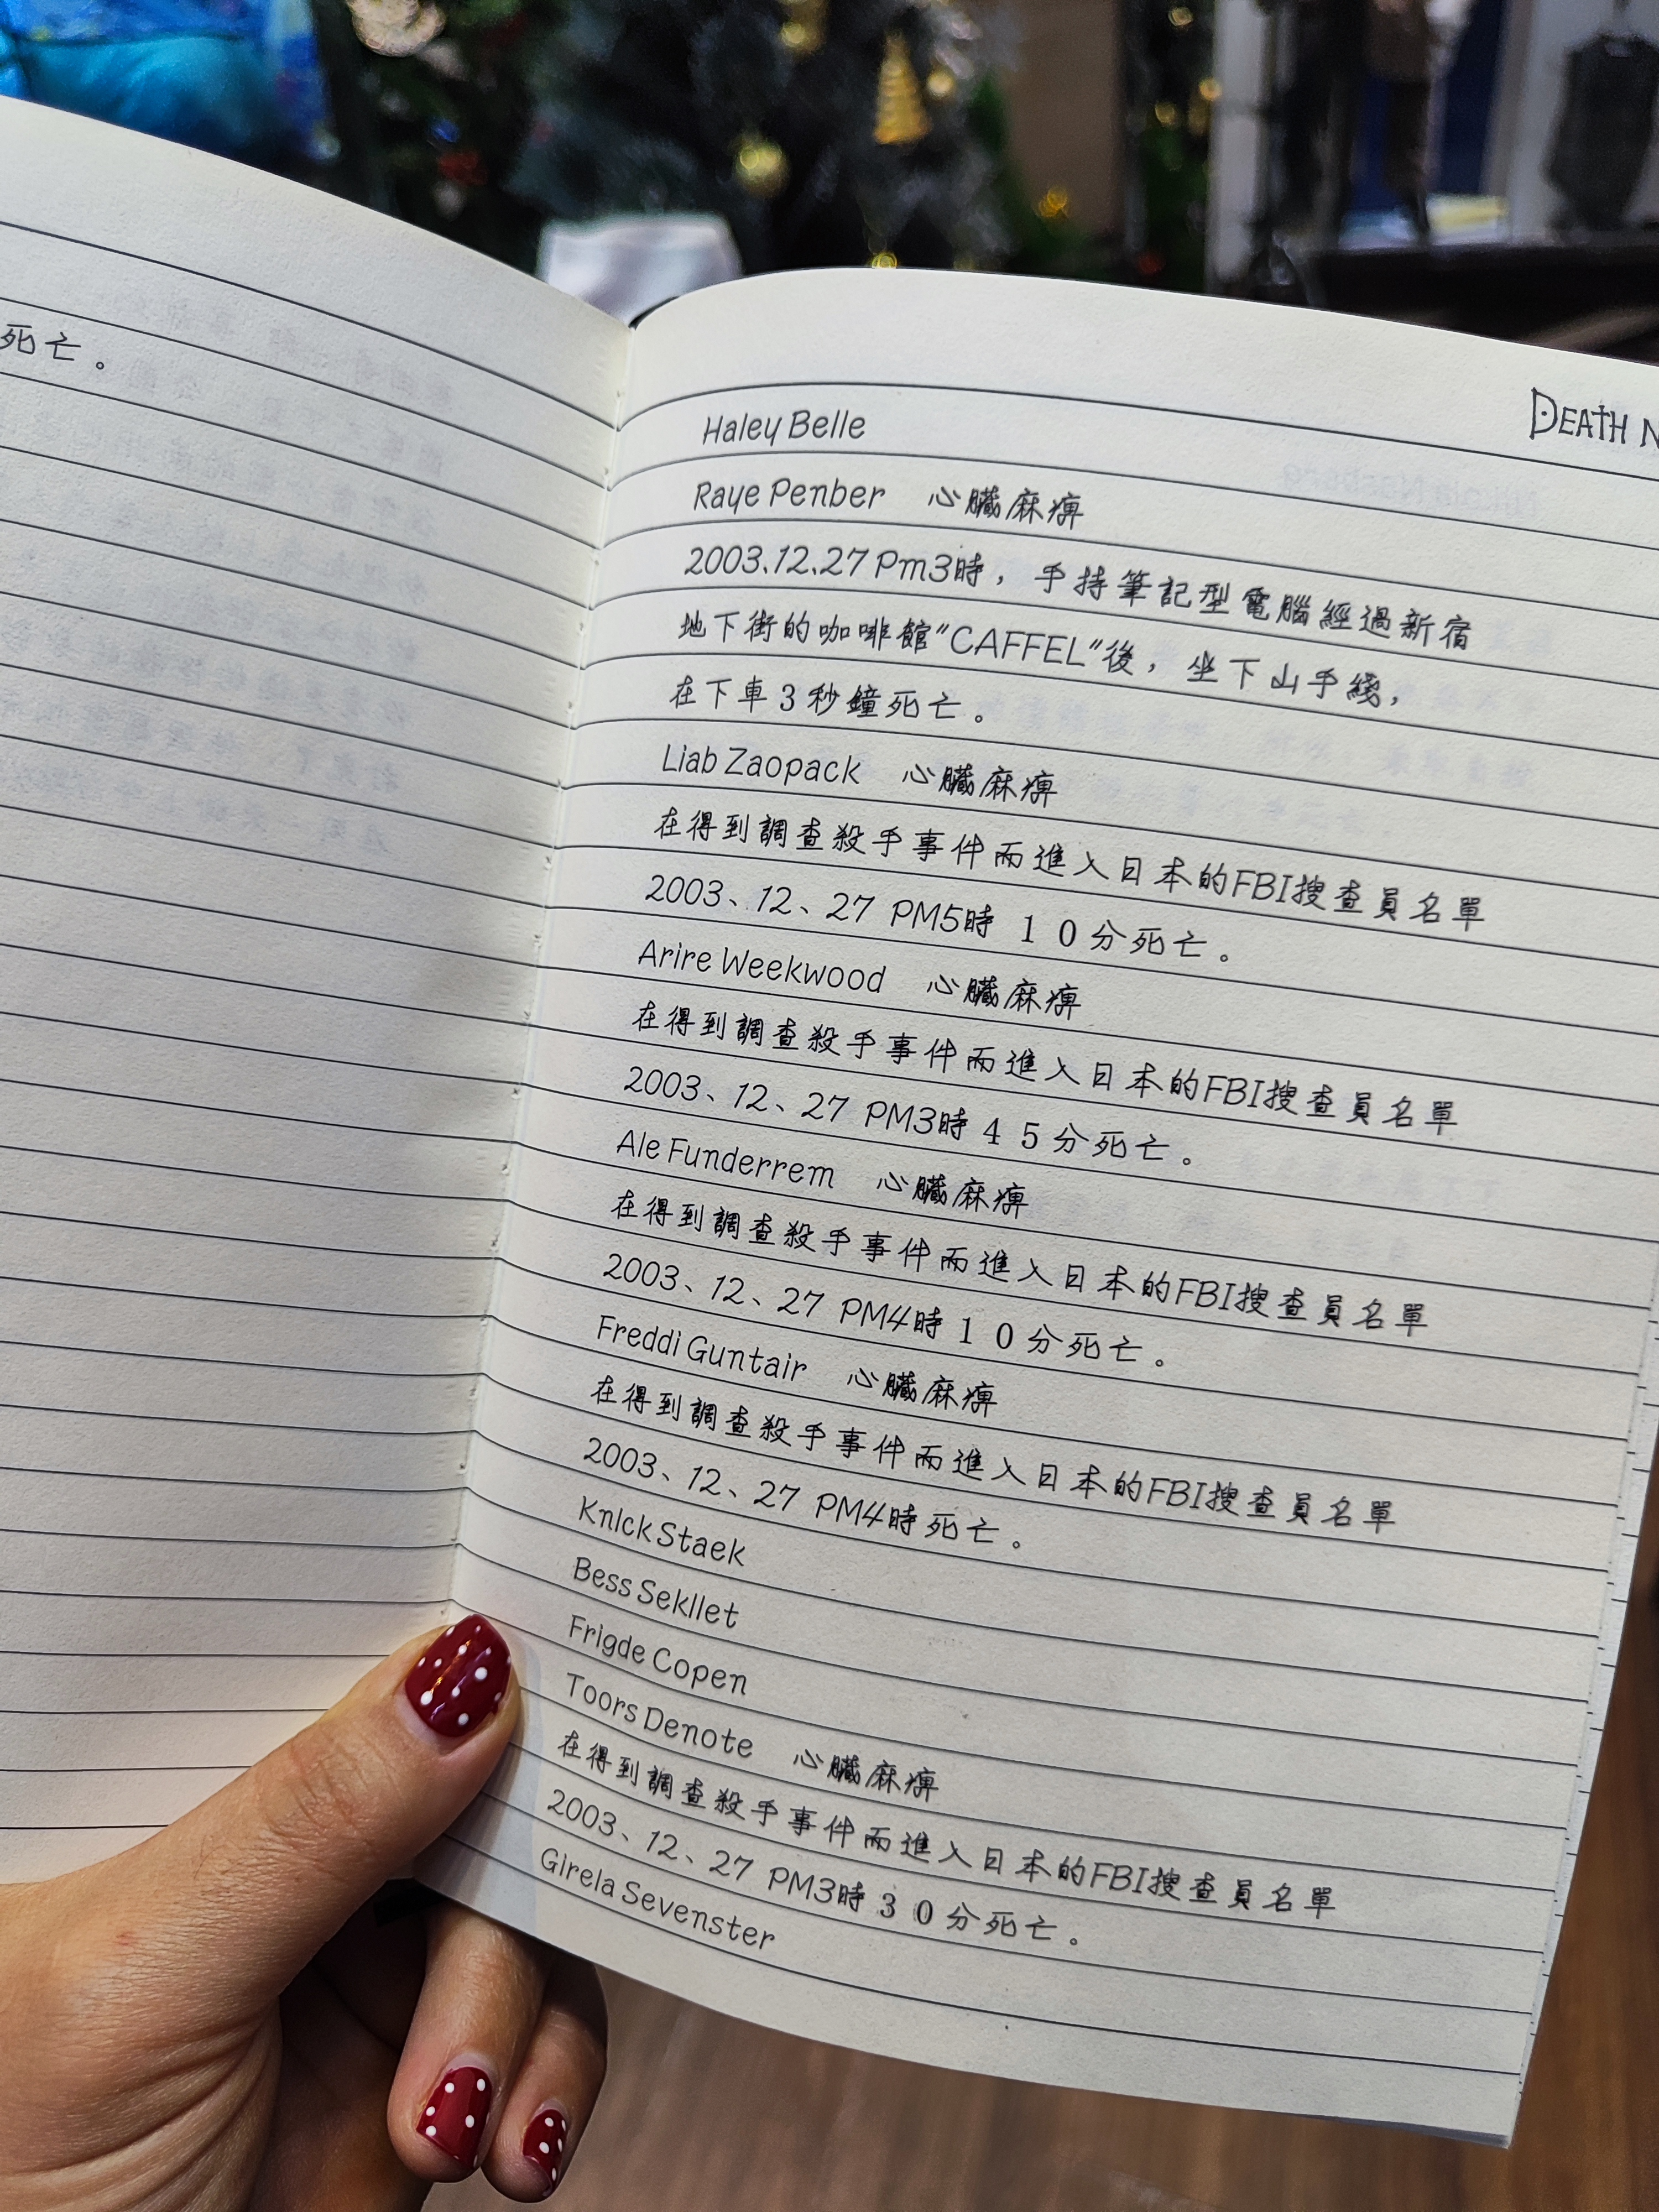 死亡。
DEATH N
Haley Belle
Raye Penber 心臟麻痺
2003.12.27 Pm3時，手持筆記型電腦經過新宿
地下街的咖啡館"CAFFEL"後，坐下山手綫，
在下車3秒鐘死亡。
Liab Zaopack 心臟麻痺
在得到調查殺手事件而進入日本的FBI搜查員名單
2003、12、27 PM5時 10分死亡。
Arire Weekwood 心臟麻痺
在得到調查殺手事件而進入日本的FBI搜查員名單
2003、12、27 PM3時45分死亡。
Ale Funderrem 心臟麻痺
在得到調查殺手事件而進入日本的FBI搜查員名單
2003、12、27 PM4時10分死亡。
Freddi Guntair 心臟麻痺
在得到調查殺手事件而進入日本的FBI搜查員名單
2003、12、27 PM4時死亡。
Knlck Staek
Bess Sekllet
Frigde Copen
Toors Denote 心臟麻痺
在得到調查殺手事件而進入日本的FBI搜查員名單
2003、12、27 PM3時30分死亡。
Girela Sevenster